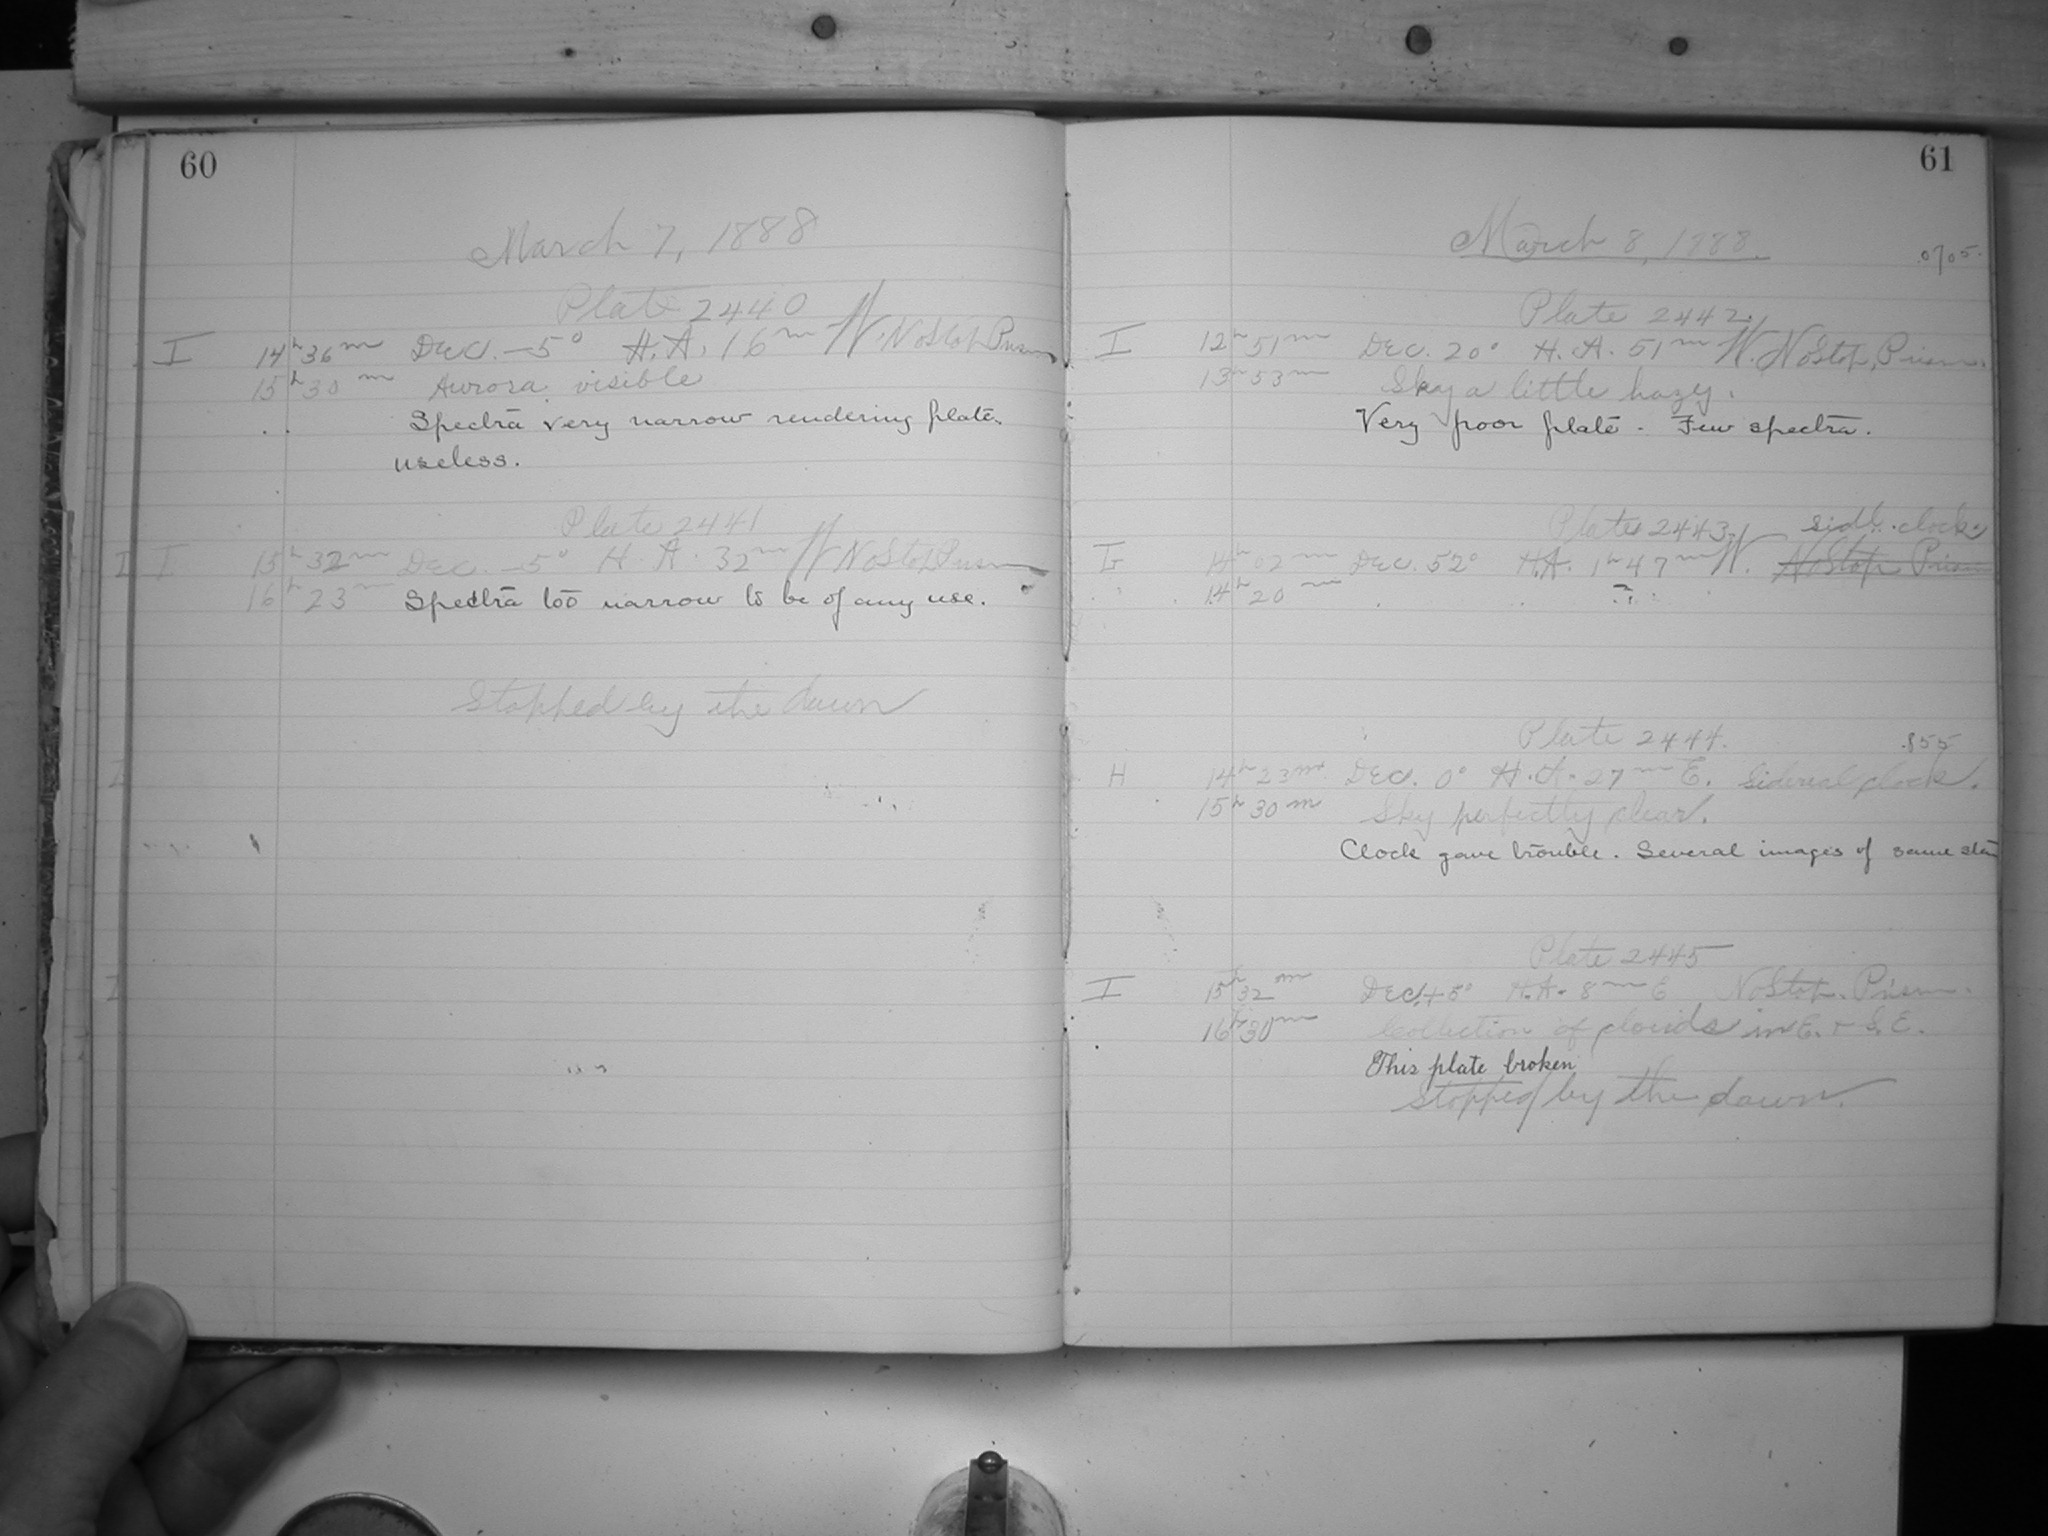 60
March 7, 1888
Plate 2440
I 14h 36m Dec. -5° H.A. 16m W. No Stop Prism
15h 30m Aurora visible
Spectra very narrow rendering plate
useless.
Plate 2441
I I 15h 32m Dec. -5° H.A. 32m W No Stop Prism
16h 23m Spectra too narrow to be of any use.
Stopped by the dawn
61
March 8, 1888.
.0705.
Plate 2442
I 12h 51m Dec. 20° H.A. 51m W. No Stop, Prism.
13h 53m Sky a little hazy.
Very poor plate. Few spectra.
Plate 2443. sidl. clock.
14h 02m Dec. 52° H.A. 1h 47m W. No Stop Prism
14h 20m ?
Plate 2444. .855
H 14h 23m Dec. 0° H.A. 27m E. Sidereal clock.
15h 30m Sky perfectly clear.
Clock gave trouble. Several images of same star
Plate 2445
I 15h 32m Dec. +5° H.A. 8m E No Stop. Prism.
16h 30m Collection of clouds in E. + S.E.
This plate broken
Stopped by the dawn.